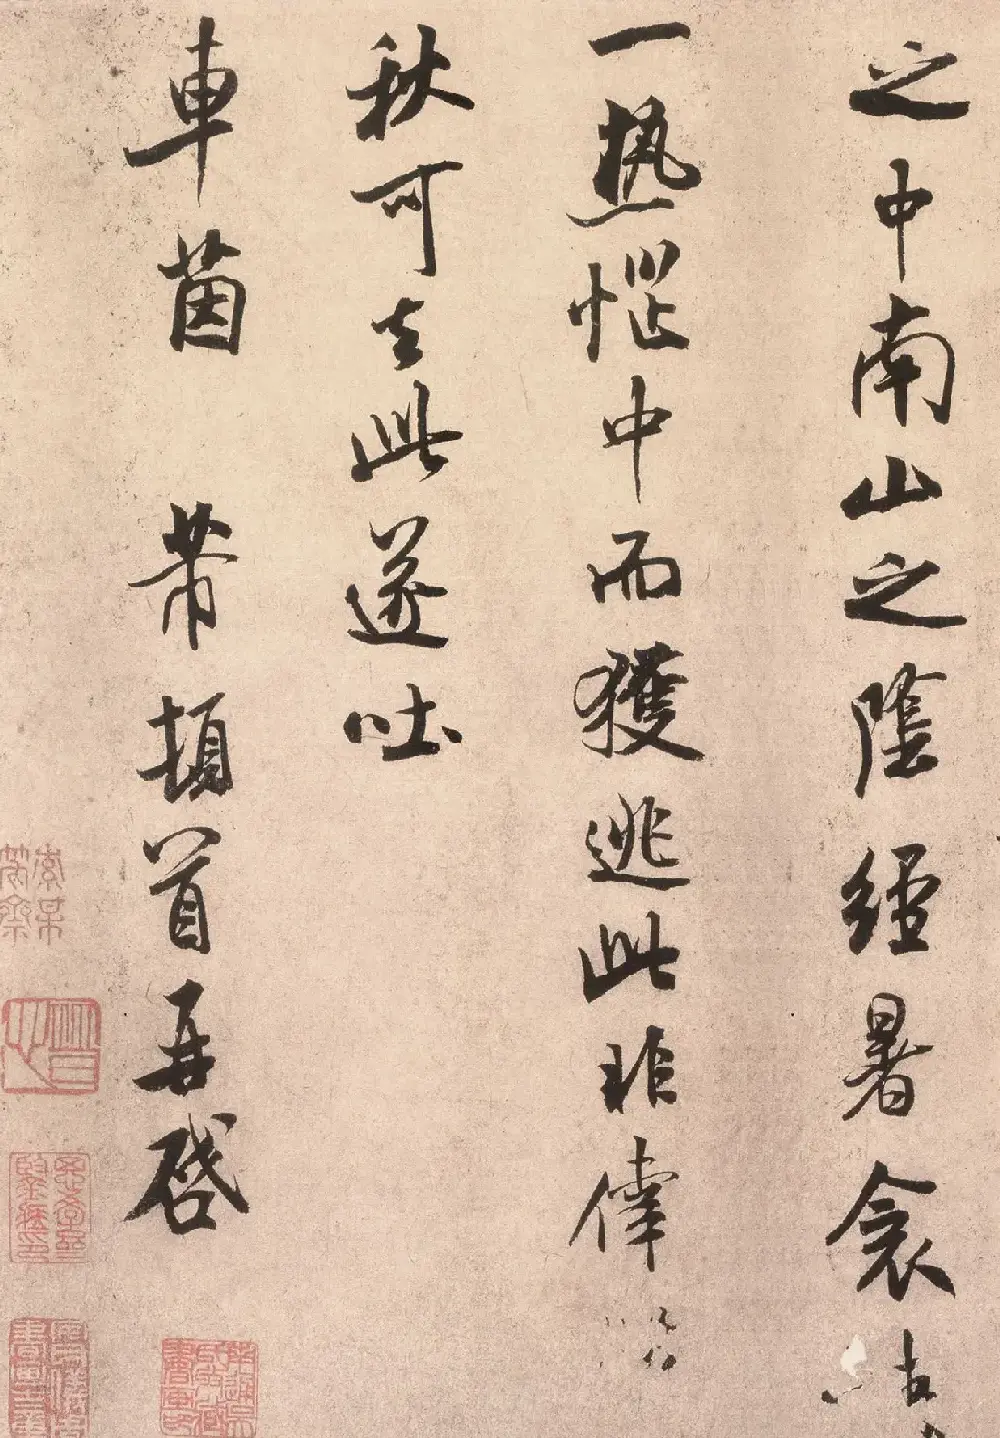 之中南山之陰經暑衾
一熱惱中而獲逃此非倖
秋可去此遂吐
車茵 芾頓首再啓